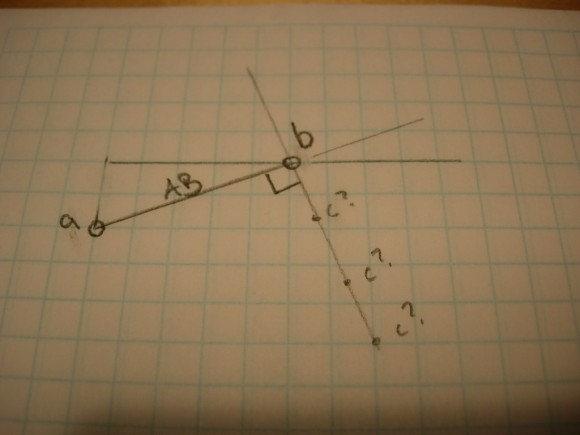 b
AB
a
c?
c?
c?